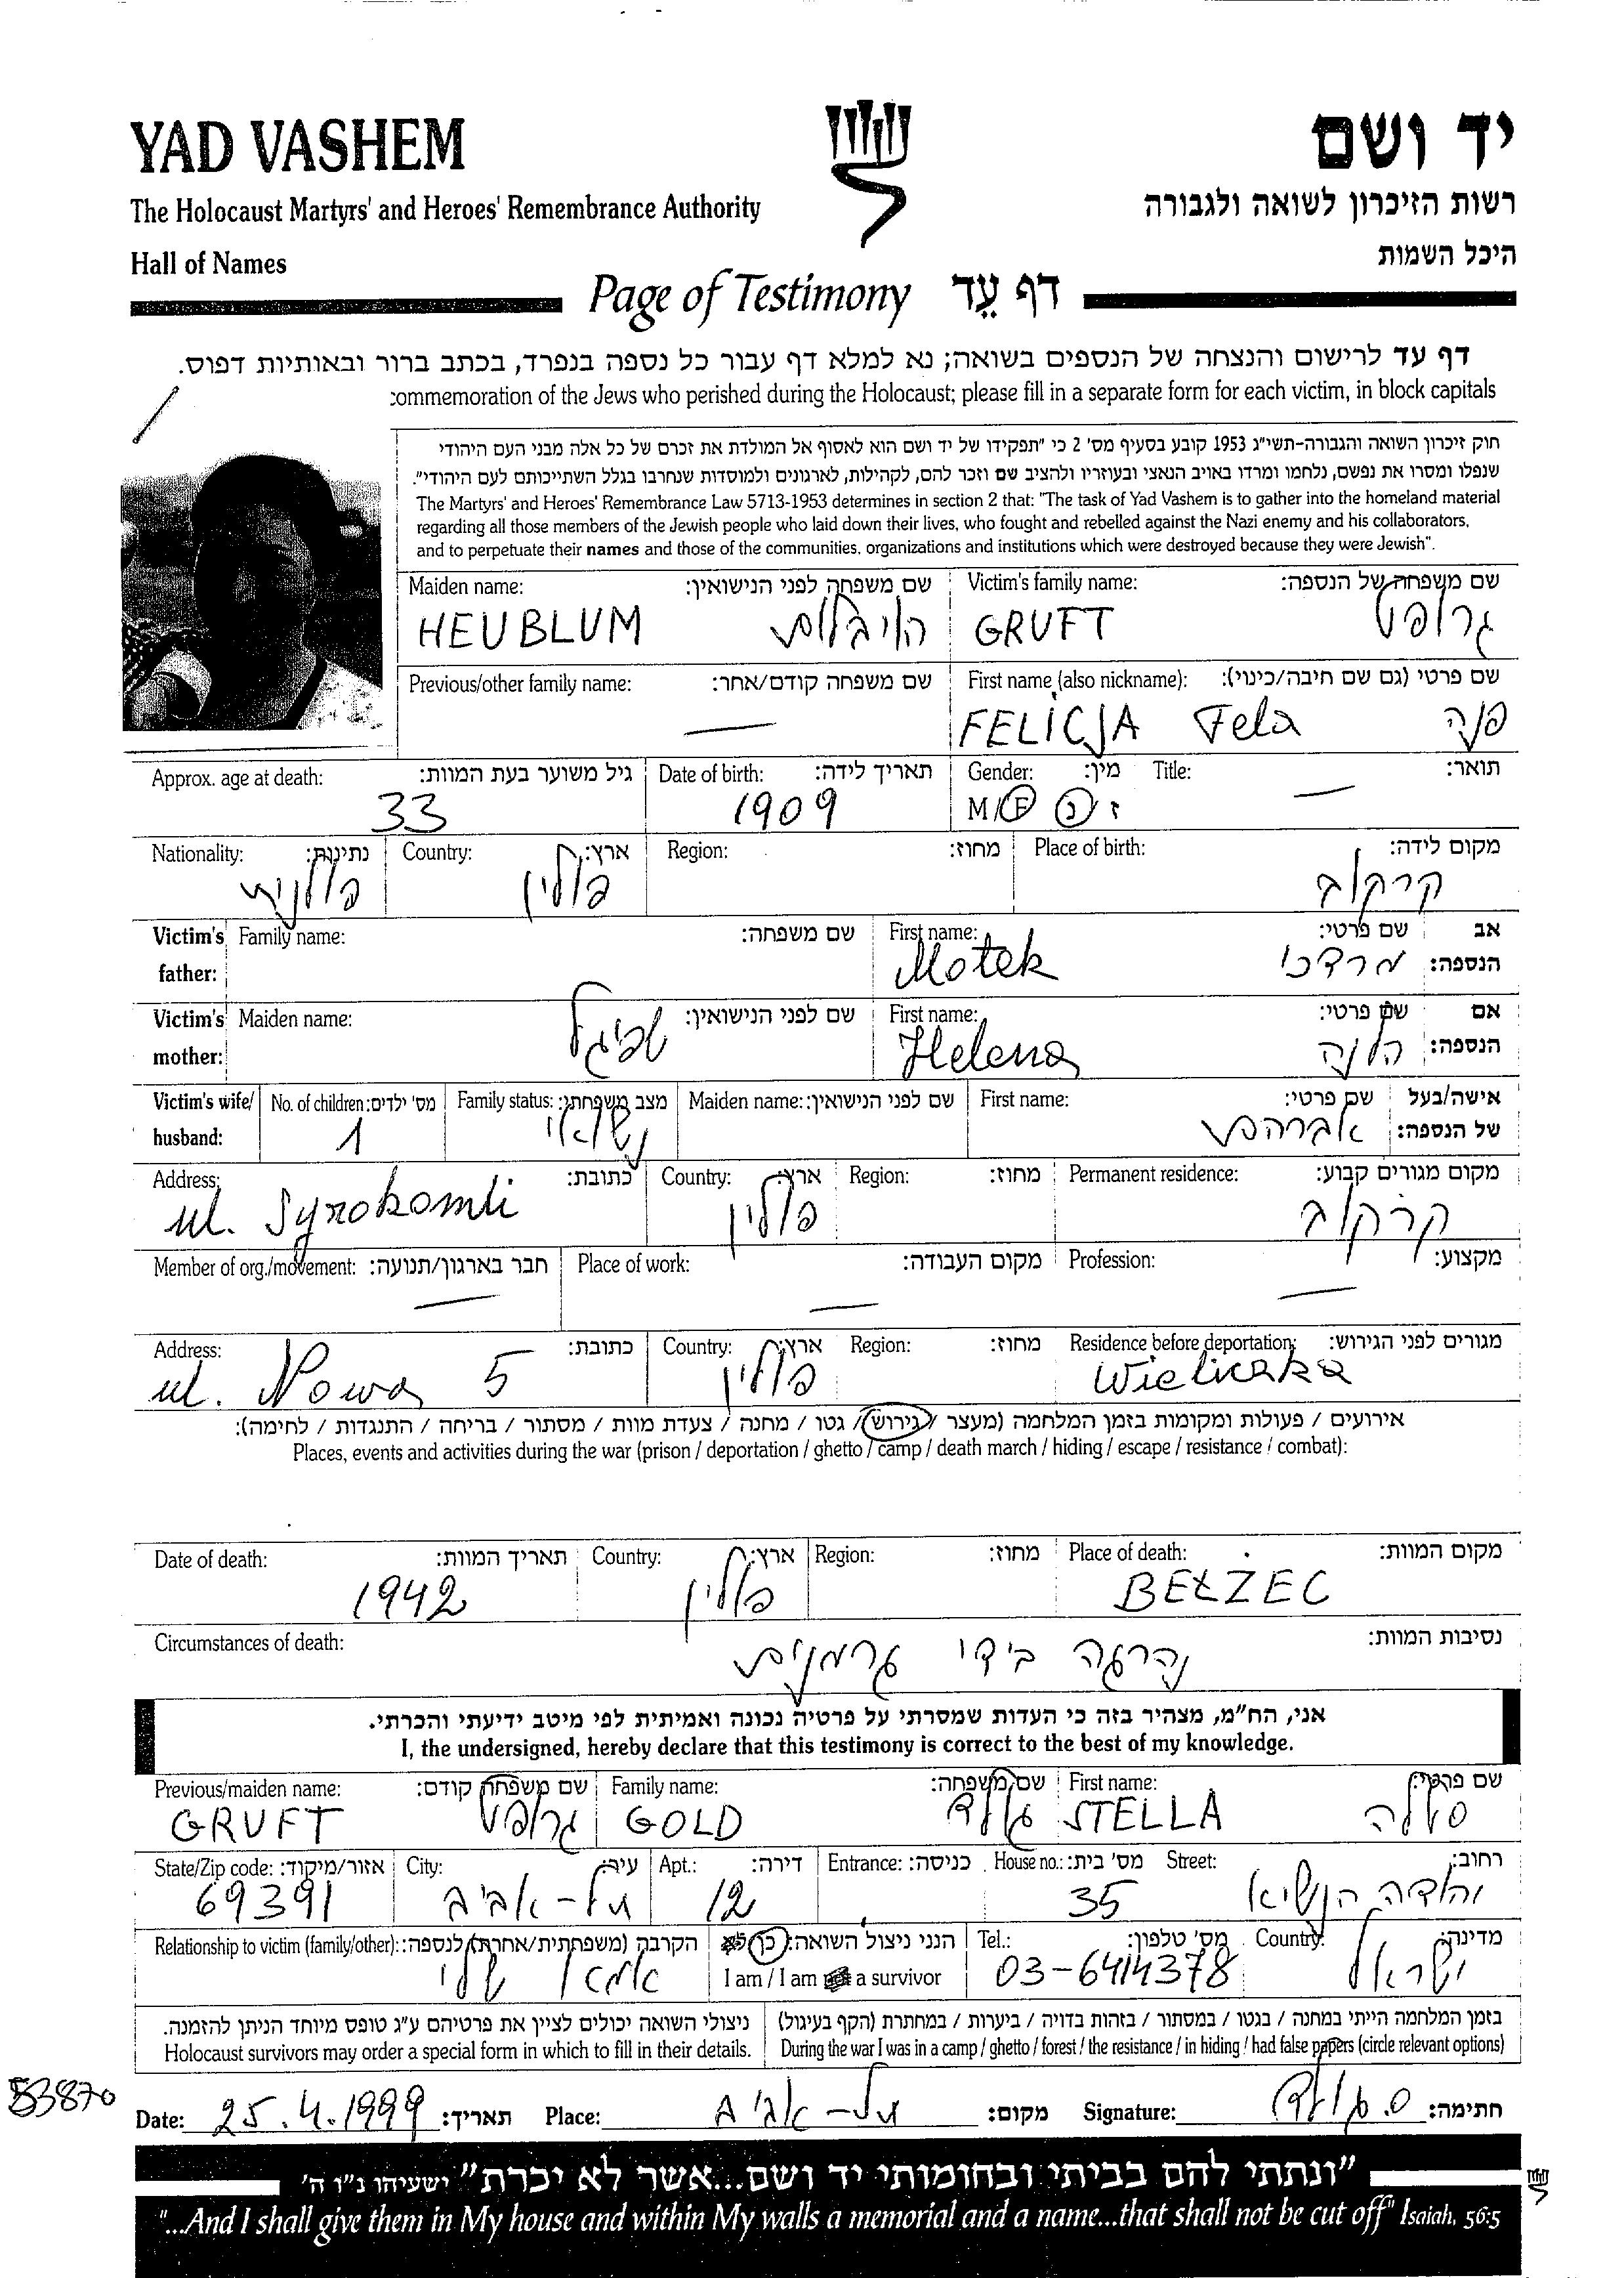 YAD VASHEM
יד ושם
The Holocaust Martyrs' and Heroes' Remembrance Authority
רשות הזיכרון לשואה ולגבורה
Hall of Names
היכל השמות
Page of Testimony דף עֵד
דף עד לרישום והנצחה של הנספים בשואה; נא למלא דף עבור כל נספה בנפרד, בכתב ברור ובאותיות דפוס.
commemoration of the Jews who perished during the Holocaust; please fill in a separate form for each victim, in block capitals
חוק זיכרון השואה והגבורה-תשי"ג 1953 קובע בסעיף מס' 2 כי "תפקידו של יד ושם הוא לאסוף אל המולדת את זכרם של כל אלה מבני העם היהודי
שנפלו ומסרו את נפשם, נלחמו ומרדו באויב הנאצי ובעוזריו ולהציב שם וזכר להם, לקהילות, לארגונים ולמוסדות שנחרבו בגלל השתייכותם לעם היהודי".
The Martyrs' and Heroes' Remembrance Law 5713-1953 determines in section 2 that: "The task of Yad Vashem is to gather into the homeland material
regarding all those members of the Jewish people who laid down their lives, who fought and rebelled against the Nazi enemy and his collaborators,
and to perpetuate their names and those of the communities, organizations and institutions which were destroyed because they were Jewish".
Maiden name: שם משפחה לפני הנישואין: Victim's family name: שם משפחה של הנספה:
HEUBLUM הויבלום GRUFT גרופט
Previous/other family name: שם משפחה קודם/אחר: First name (also nickname): שם פרטי (גם שם חיבה/כינוי):
— FELICJA Fela פלה
Approx. age at death: גיל משוער בעת המוות: Date of birth: תאריך לידה: Gender: מין: Title: תואר:
33 1909 M/F ז/נ —
Nationality: נתינות: Country: ארץ: Region: מחוז: Place of birth: מקום לידה:
פולנית פולין קרקוב
Victim's father: Family name: שם משפחה: First name: שם פרטי: אב הנספה:
Motek מרדכי
Victim's mother: Maiden name: שם לפני הנישואין: First name: שם פרטי: אם הנספה:
שפיגל Helena הלנה
Victim's wife/husband: No. of children: מס' ילדים: Family status: מצב משפחתי: Maiden name: שם לפני הנישואין: First name: שם פרטי: אישה/בעל של הנספה:
1 נשואי אברהם
Address: כתובת: Country: ארץ: Region: מחוז: Permanent residence: מקום מגורים קבוע:
ul. Syrokomli פולין קרקוב
Member of org./movement: חבר בארגון/תנועה: Place of work: מקום העבודה: Profession: מקצוע:
— — —
Address: כתובת: Country: ארץ: Region: מחוז: Residence before deportation: מגורים לפני הגירוש:
ul. Nowa 5 פולין Wieliczka
אירועים / פעולות ומקומות בזמן המלחמה (מעצר / גירוש / גטו / מחנה / צעדת מוות / מסתור / בריחה / התנגדות / לחימה):
Places, events and activities during the war (prison / deportation / ghetto / camp / death march / hiding / escape / resistance / combat):
Date of death: תאריך המוות: Country: ארץ: Region: מחוז: Place of death: מקום המוות:
1942 פולין BEŁŻEC
Circumstances of death: נסיבות המוות:
נהרגה בידי גרמנים
אני, הח"מ, מצהיר בזה כי העדות שמסרתי על פרטיה נכונה ואמיתית לפי מיטב ידיעתי והכרתי.
I, the undersigned, hereby declare that this testimony is correct to the best of my knowledge.
Previous/maiden name: שם משפחה קודם: Family name: שם משפחה: First name: שם פרטי:
GRUFT גרופט GOLD גולד STELLA סטלה
State/Zip code: אזור/מיקוד: City: עיר: Apt.: דירה: Entrance: כניסה: House no.: מס' בית: Street: רחוב:
69391 תל-אביב 12 35 יהודה הנשיא
Relationship to victim (family/other): הקרבה (משפחתית/אחרת) לנספה: הנני ניצול השואה: כן Tel.: מס' טלפון: Country: מדינה:
אמא שלי I am / I am a survivor 03-6414378 ישראל
בזמן המלחמה הייתי במחנה / בגטו / במסתור / בזהות בדויה / ביערות / במחתרת (הקף בעיגול)
ניצולי השואה יכולים לציין את פרטיהם ע"ג טופס מיוחד הניתן להזמנה.
Holocaust survivors may order a special form in which to fill in their details.
During the war I was in a camp / ghetto / forest / the resistance / in hiding / had false papers (circle relevant options)
53870
Date: 25.4.1999 תאריך: Place: תל-אביב מקום: Signature: ס. גולד חתימה:
"ונתתי להם בביתי ובחומותי יד ושם...אשר לא יכרת" ישעיהו נ"ו ה'
"...And I shall give them in My house and within My walls a memorial and a name...that shall not be cut off" Isaiah, 56:5